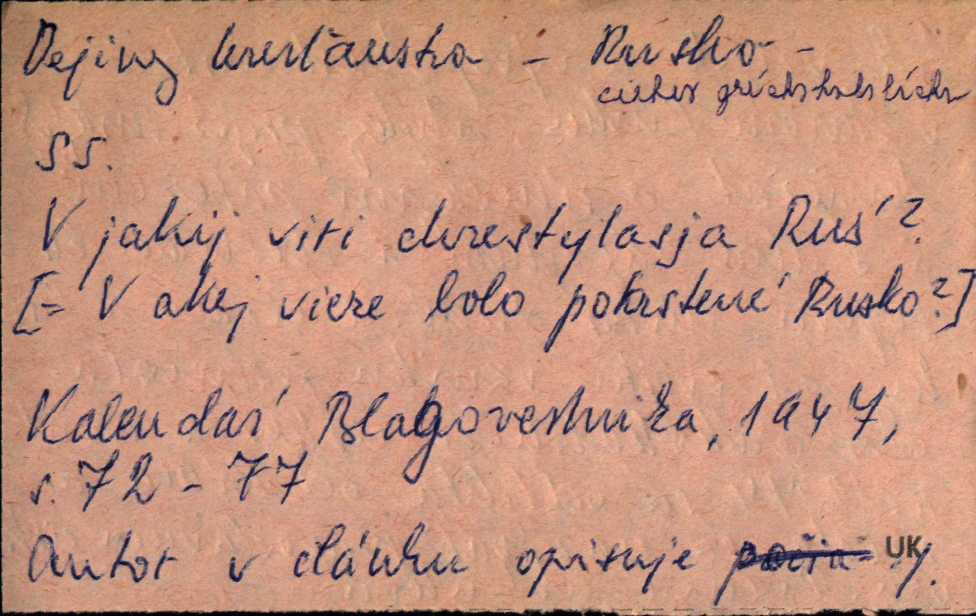 Dejiny kresťanstva - Rusko -
cirkev gréckokatolícka
SS.
V jakij viri chrestylasja Rus'?
[= V akej viere bolo pokrstené Rusko?]
Kalendar' Blagovestnika, 1947,
s. 72 - 77
Autor v článku opisuje
UK